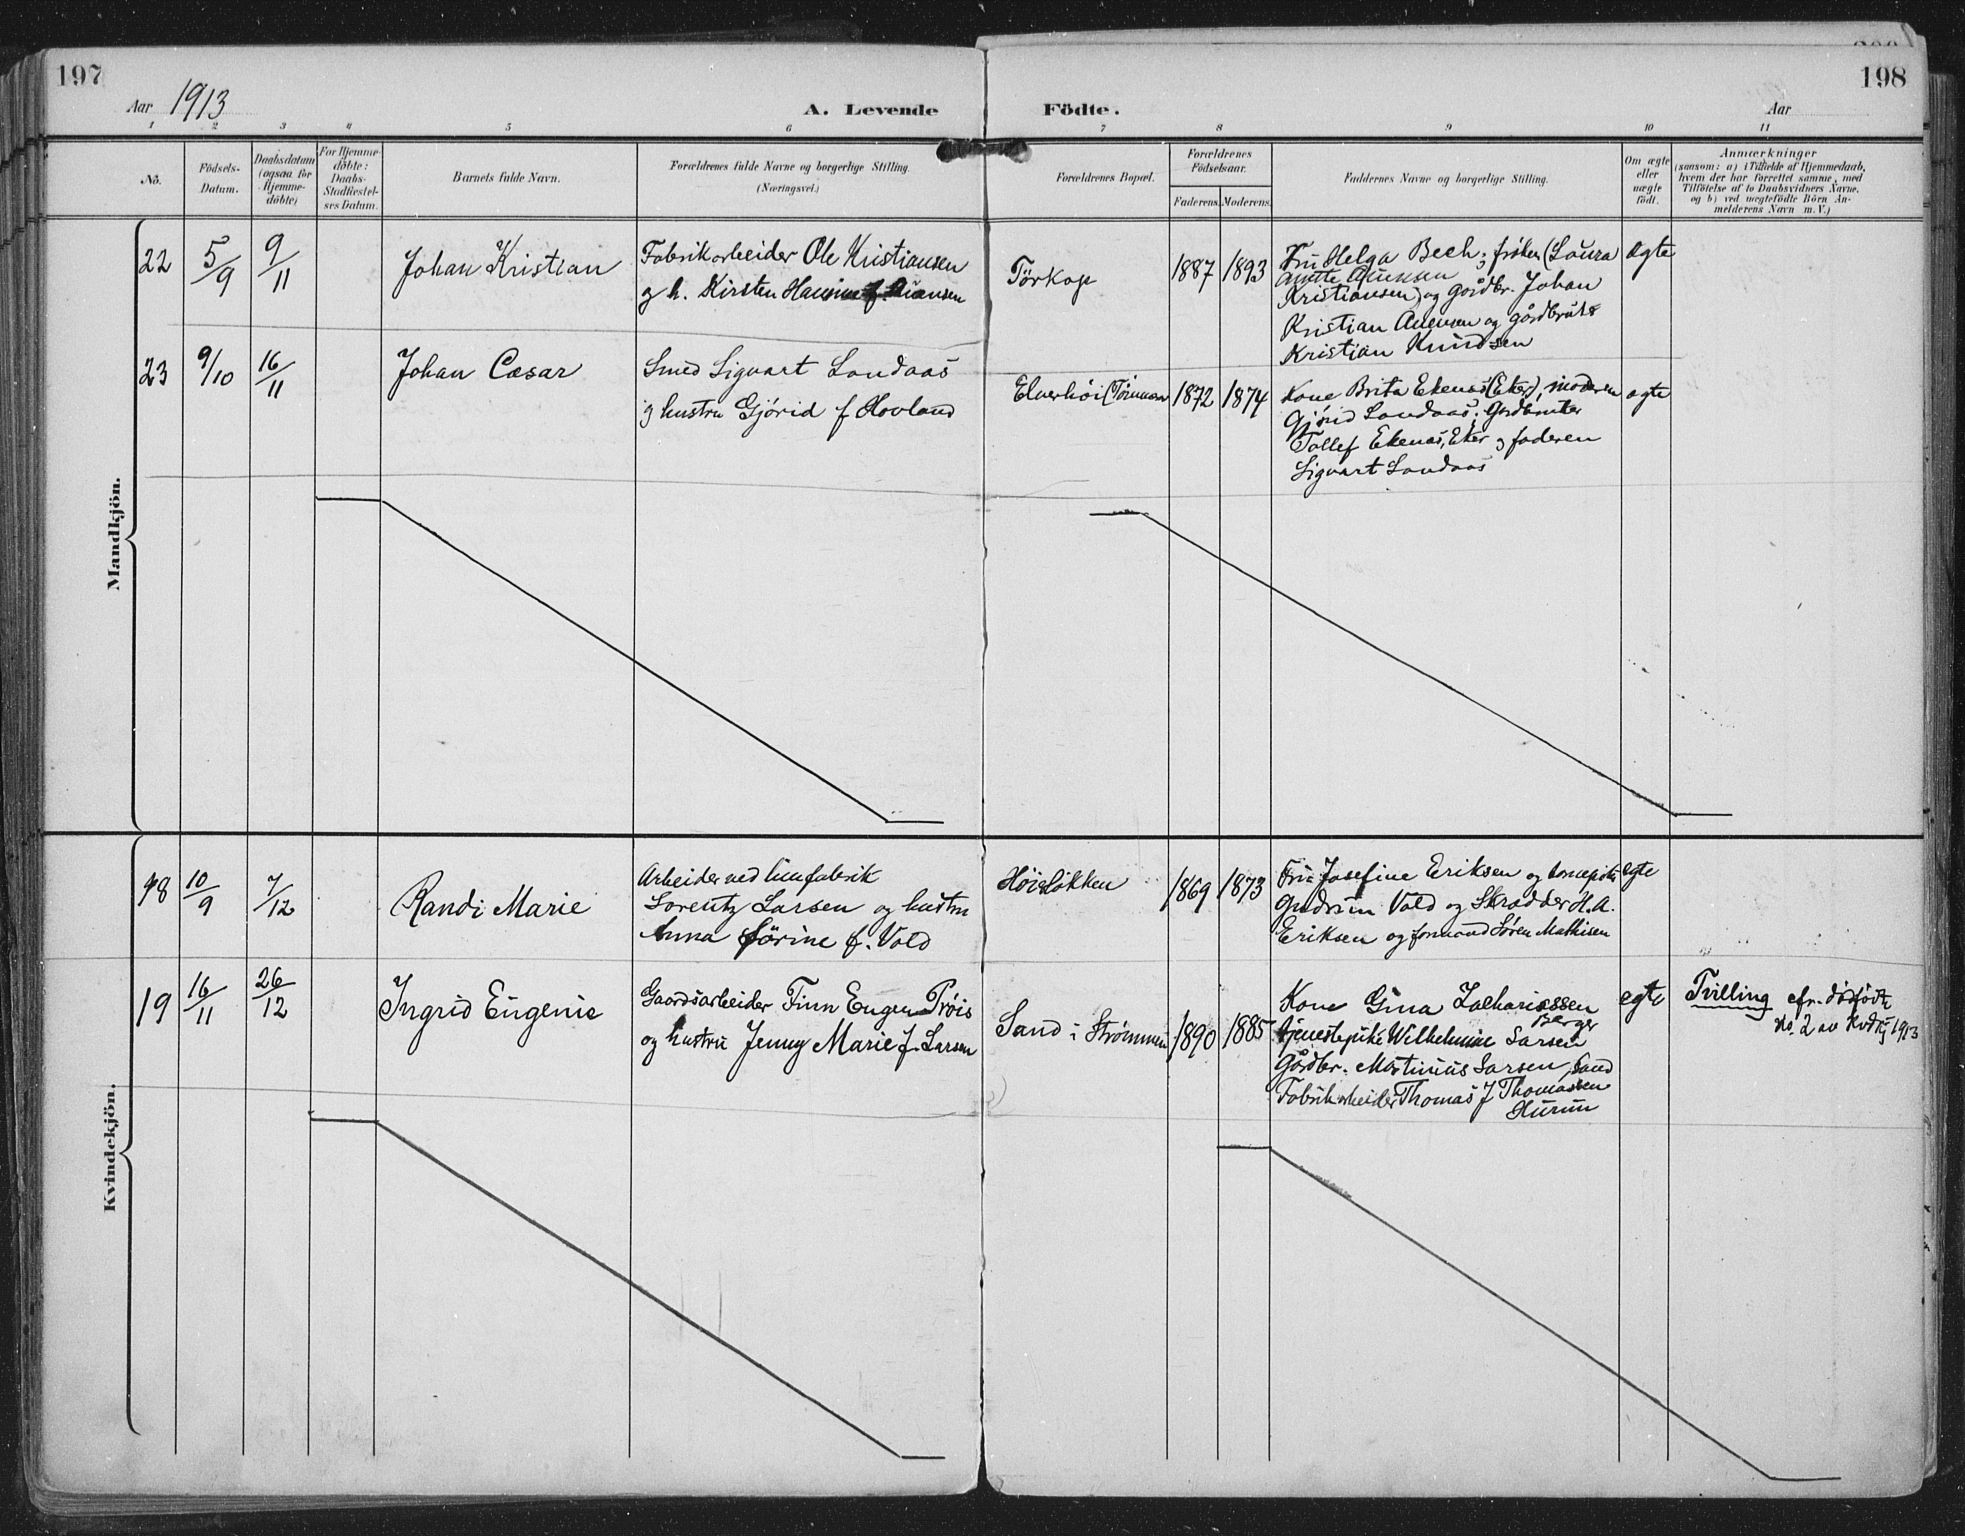 197
198
Aar 1913
A. Levende Födte.
Aar
1 2 3 4 5 6 7 8 9 10 11
No.
Födsels-
Datum.
Daabsdatum
(ogsaa for
Hjemme-
döbte)
For Hjemme-
döbte:
Daabs-
Stadfæstel-
ses Datum.
Barnets fulde Navn.
Forældrenes fulde Navne og borgerlige Stilling.
(Næringsvei.)
Forældrenes Bopæl.
Forældrenes
Födselsaar.
Faderens. Moderens.
Faddernes Navne og borgerlige Stilling.
Om ægte
eller
uægte
födt.
Anmærkninger
(saasom: a) i Tilfælde af Hjemmedaab,
hvem der har forrettet samme, med
Tilföielse af to Daabsvidners Navne,
og b) ved uægtefödte Börn An-
melderens Navn m. V.)
Mandkjön.
22
5/9
9/11
Johan Kristian
Fabrikarbeider Ole Kristiansen
g h. Kirsten
Törkop
1887
1893
Fru Helga Bech; frøken (Laura
Kristiansen) og Gårdbr. Johan
Kristian Anensen og gårdbruk
Kristian Knudsen
ægte
23
9/10
16/11
Johan Cæsar
Smed Sigvart Landaas
g hustru Gjørid f Hovland
Elverhöi
1872
1874
Kone Brita Ekenæs (Eker), moderen
Gjørid Landaas; Gårdbruker
Tollef Ekenæs, Eker og faderen
Sigvart Landaas
ægte
Kvindekjön.
18
10/9
7/12
Randi Marie
Arbeider ved limfabrik
Lorentz Larsen og hustru
Anna Sørine f. Vold
Höiesløkken
1869
1873
Fru Josefine Eriksen og
Gudrun Vold og Skrædder H. A.
Eriksen og formand Søren Mathisen
egte
19
16/11
26/12
Ingrid Eugenie
Gaardsarbeider Finn Eugen Prøis
og hustru Jenny Marie f. Larsen
Sand i Strömmen
1890
1885
Kone Gina Zachariassen
Berger
tjenestepike Wilhelmine Larsen
Gårdbr. Martinius Larsen, Sand
Fabrikarbeider Thomas J Thomassen
Hurum
egte
Tvilling cfr. dödfödte
No. 2 av Kvdkj 1913